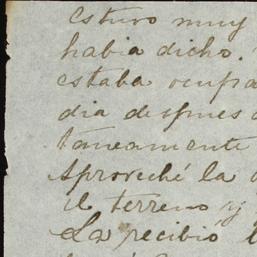 estuvo muy
habia dicho.
estaba ocupa
dia despues
taneamente
Aproveché la
el terreno y
La recibió